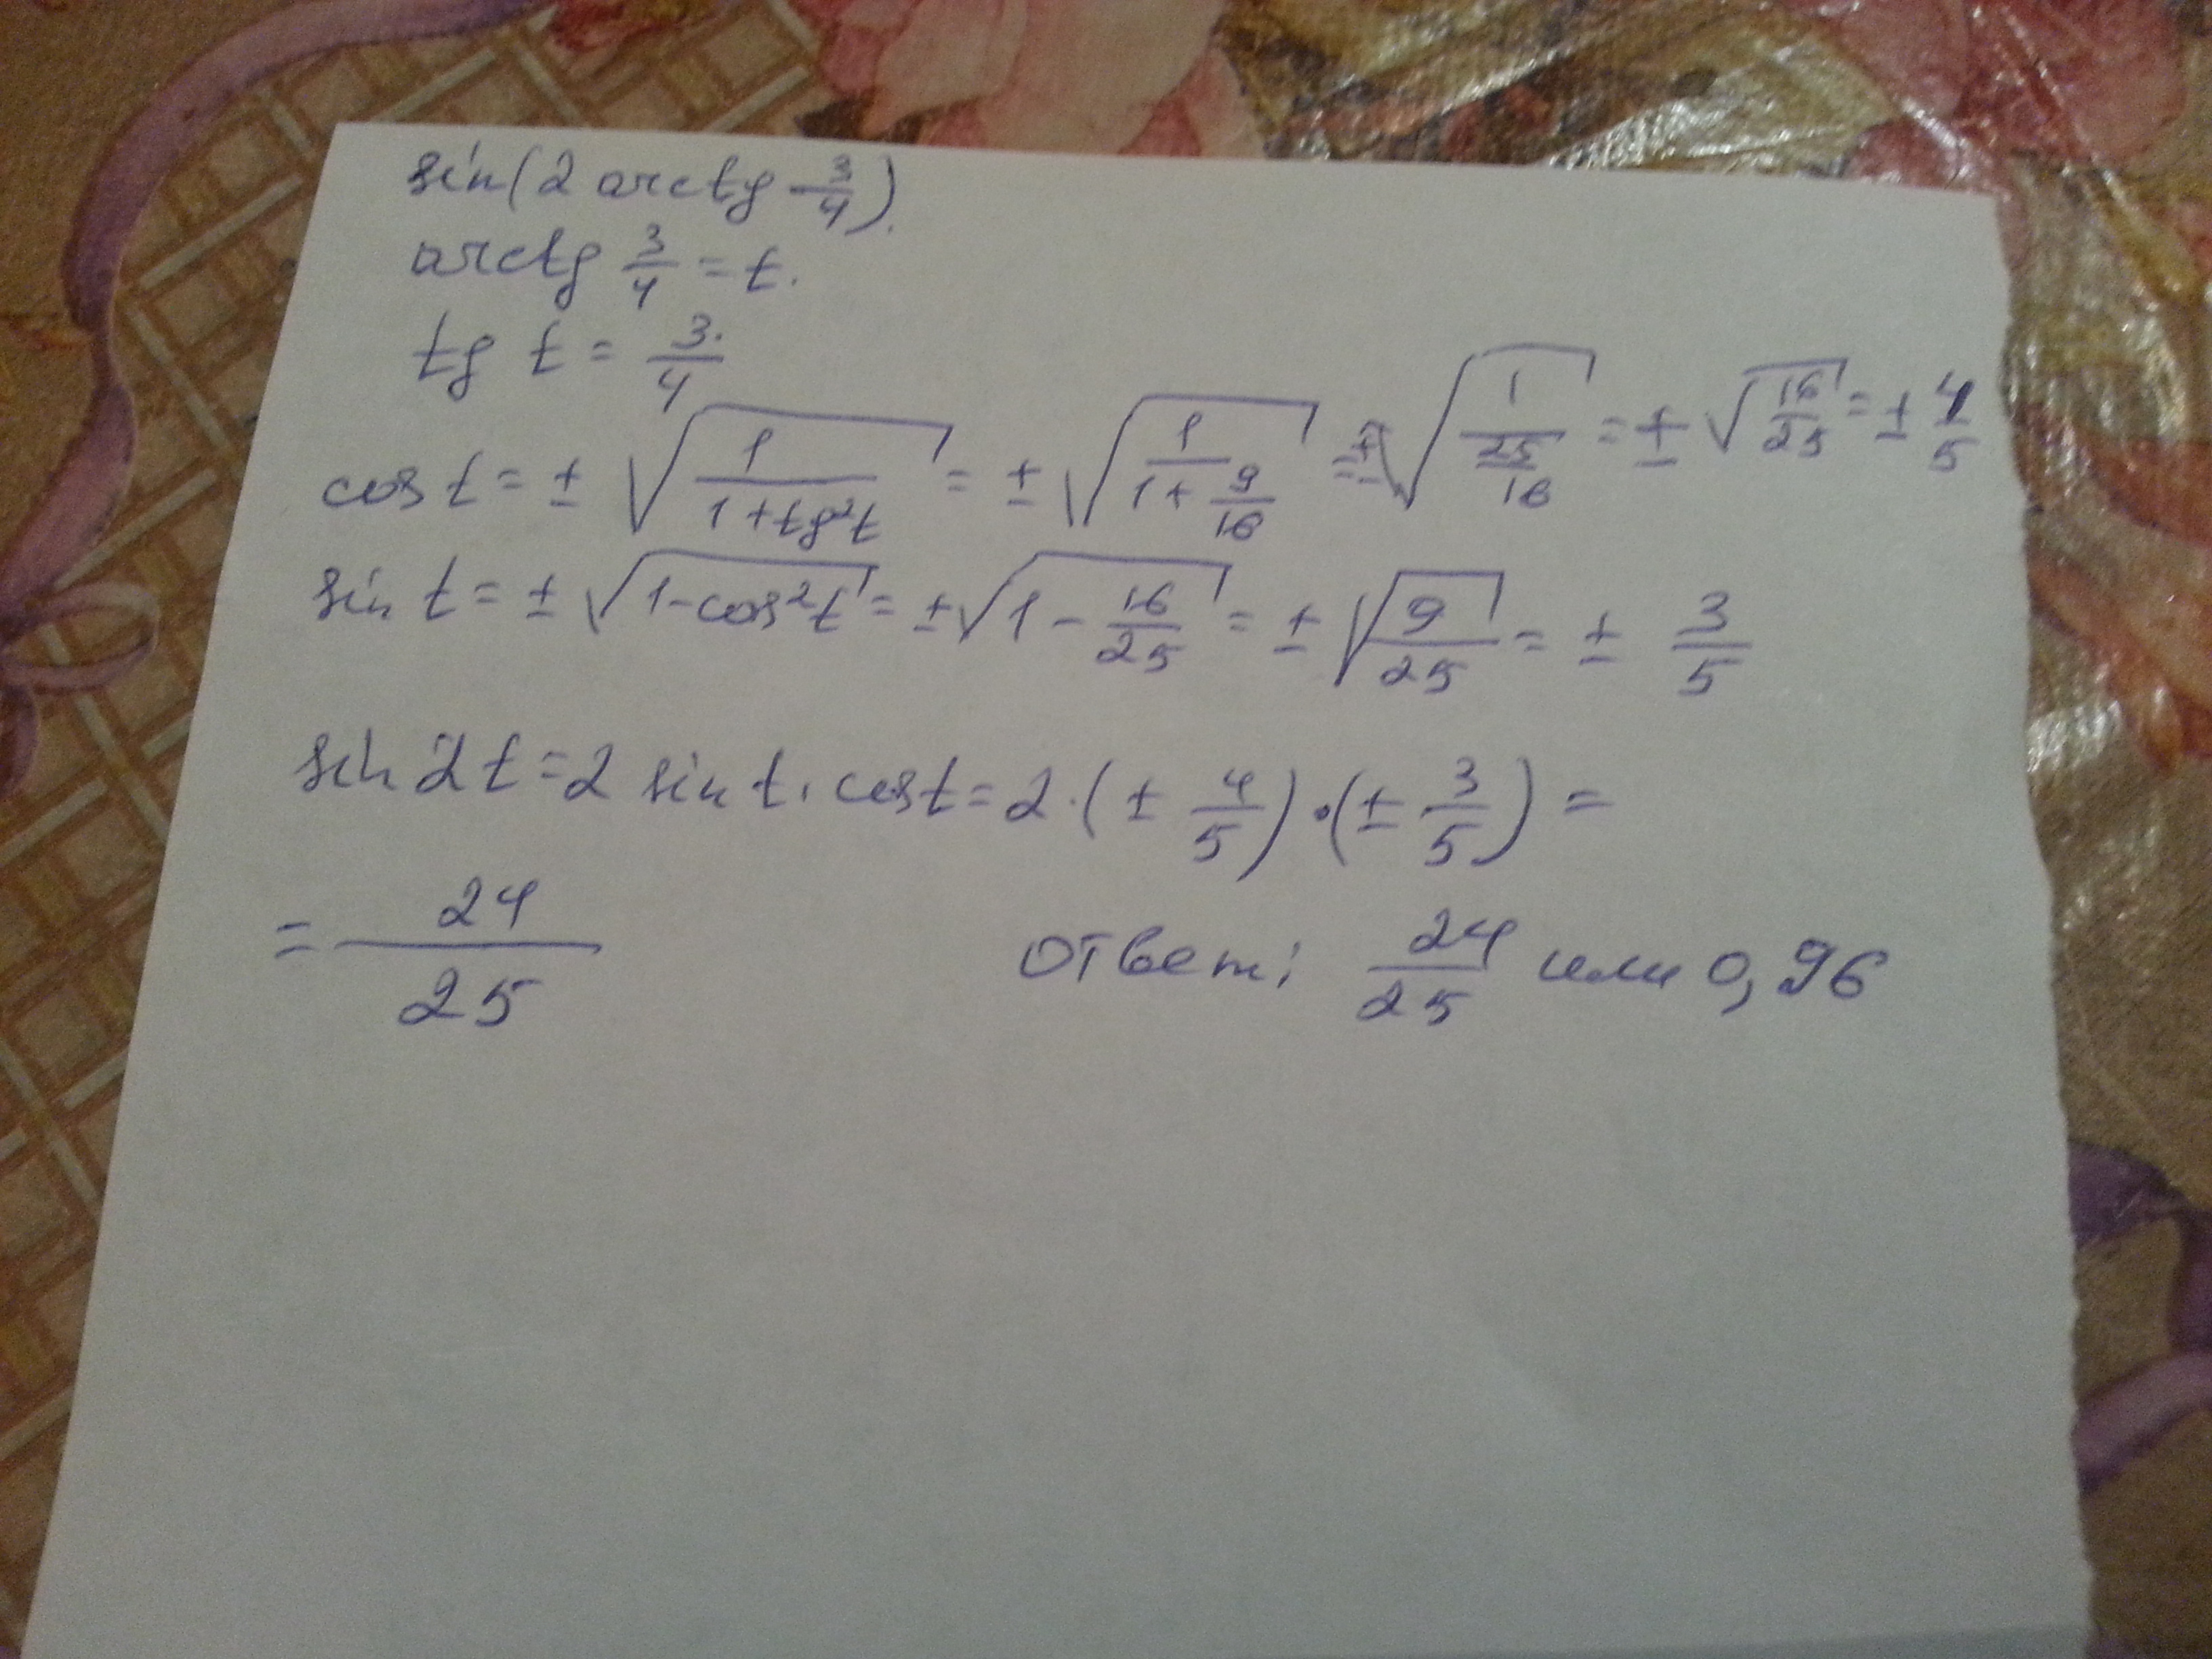 sin(2 arctg 3/4).
arctg 3/4 = t.
tg t = 3/4
cos t = ± √(1/(1+tg²t)) = ± √(1/(1+9/16)) = ± √(1/(25/16)) = ± √(16/25) = ± 4/5
sin t = ± √(1-cos²t) = ± √(1 - 16/25) = ± √(9/25) = ± 3/5
sin 2t = 2 sin t · cos t = 2 · (± 4/5) · (± 3/5) =
= 24/25 ответ: 24/25 или 0,96